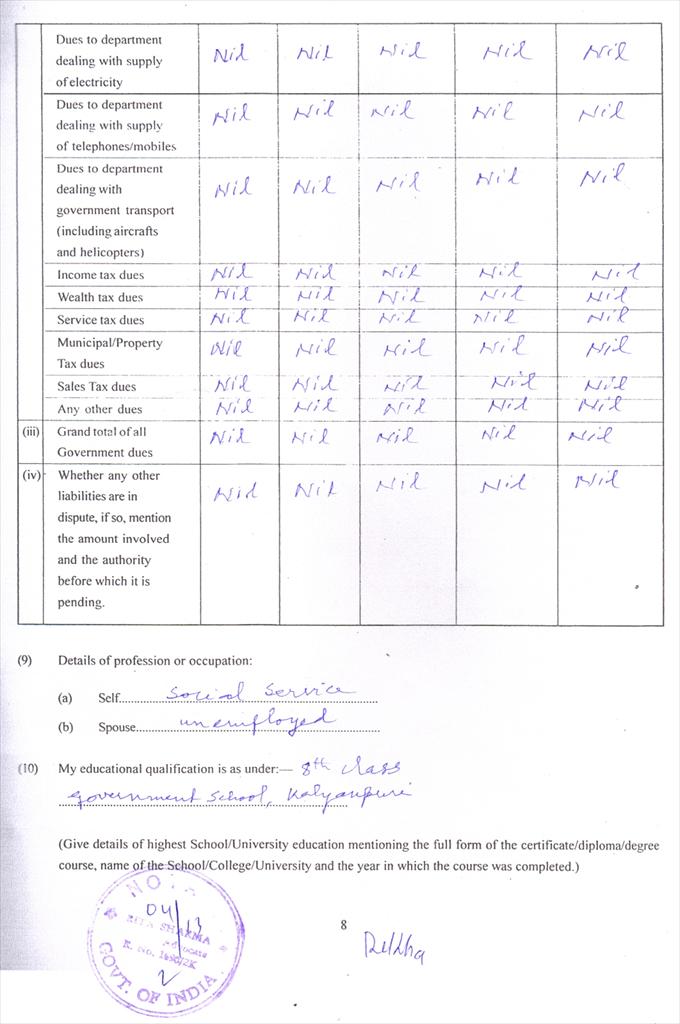 Dues to department
dealing with supply
of electricity
Nil Nil Nil Nil Nil
Dues to department
dealing with supply
of telephones/mobiles
Nil Nil Nil Nil Nil
Dues to department
dealing with
government transport
(including aircrafts
and helicopters)
Nil Nil Nil Nil Nil
Income tax dues Nil Nil Nil Nil Nil
Wealth tax dues Nil Nil Nil Nil Nil
Service tax dues Nil Nil Nil Nil Nil
Municipal/Property
Tax dues
Nil Nil Nil Nil Nil
Sales Tax dues Nil Nil Nil Nil Nil
Any other dues Nil Nil Nil Nil Nil
(iii) Grand total of all
Government dues
Nil Nil Nil Nil Nil
(iv) Whether any other
liabilities are in
dispute, if so, mention
the amount involved
and the authority
before which it is
pending.
Nil Nil Nil Nil Nil
(9) Details of profession or occupation:
(a) Self. Social Service
(b) Spouse. unemployed
(10) My educational qualification is as under:— 8th class
Government School, Kalyanpuri
(Give details of highest School/University education mentioning the full form of the certificate/diploma/degree
course, name of the School/College/University and the year in which the course was completed.)
04/13
SHARMA
Advocate
GOVT. OF INDIA
8